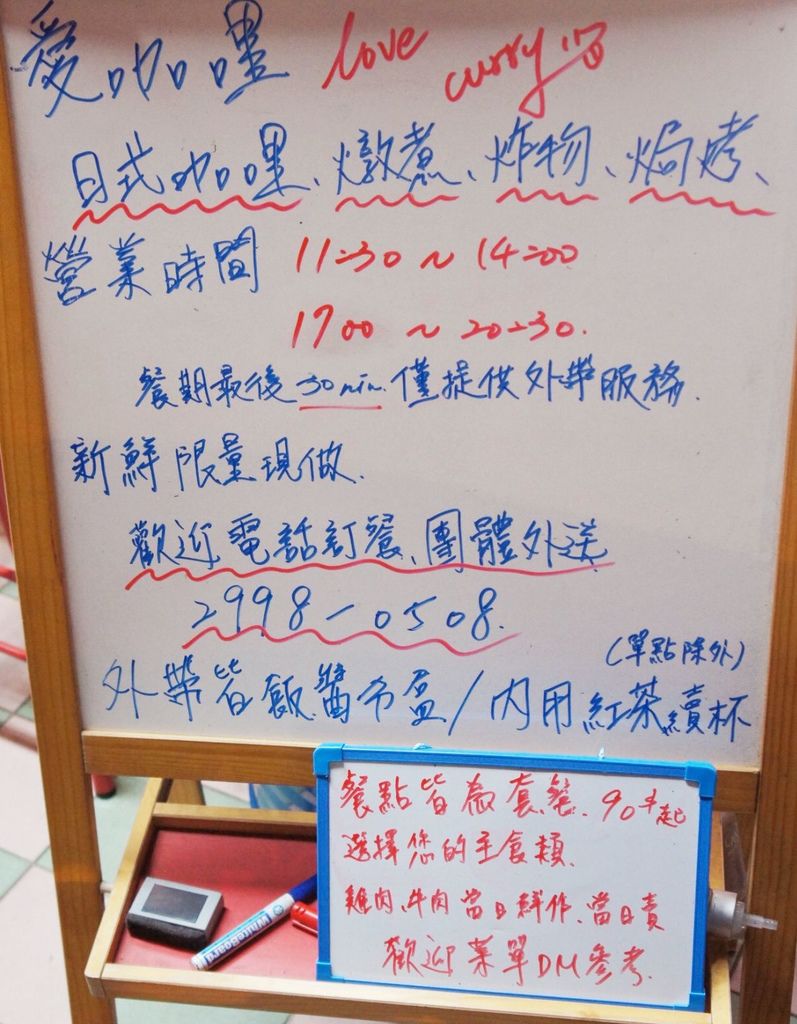 愛咖哩 love curry
日式咖哩、燉煮、炸物、焗烤、
營業時間 11:30 ~ 14:00
17:00 ~ 20:30.
餐期最後 30 min 僅提供外帶服務.
新鮮限量現做.
歡迎電話訂餐、團體外送
2998-0508.
(單點除外)
外帶皆飯醬分盒/內用紅茶續杯
餐點皆為套餐. 90元起
選擇您的主食類.
雞肉、牛肉當日鮮作、當日賣
歡迎菜單DM參考.
Whiteboard